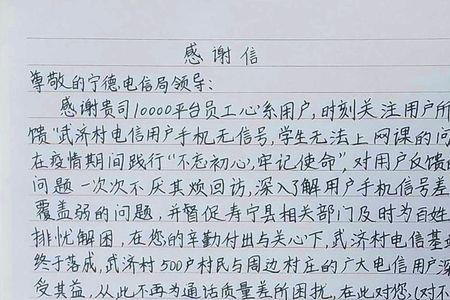 感谢信
尊敬的宁德电信局领导：
感谢贵司10000平台员工心系用户，时刻关注用户所
馈"武济村电信用户手机无信号，学生无法上网课的问
在疫情期间践行"不忘初心，牢记使命"，对用户反馈的
问题一次次不厌其烦回访，深入了解用户手机信号差
覆盖弱的问题，并督促寿宁县相关部门及时为百姓
排忧解困，在您的辛勤付出与关心下，武济村电信基
终于落成，武济村500户村民与周边村庄的广大电信用户深
受其益，从此不再为通话质量差所困扰，在此对您